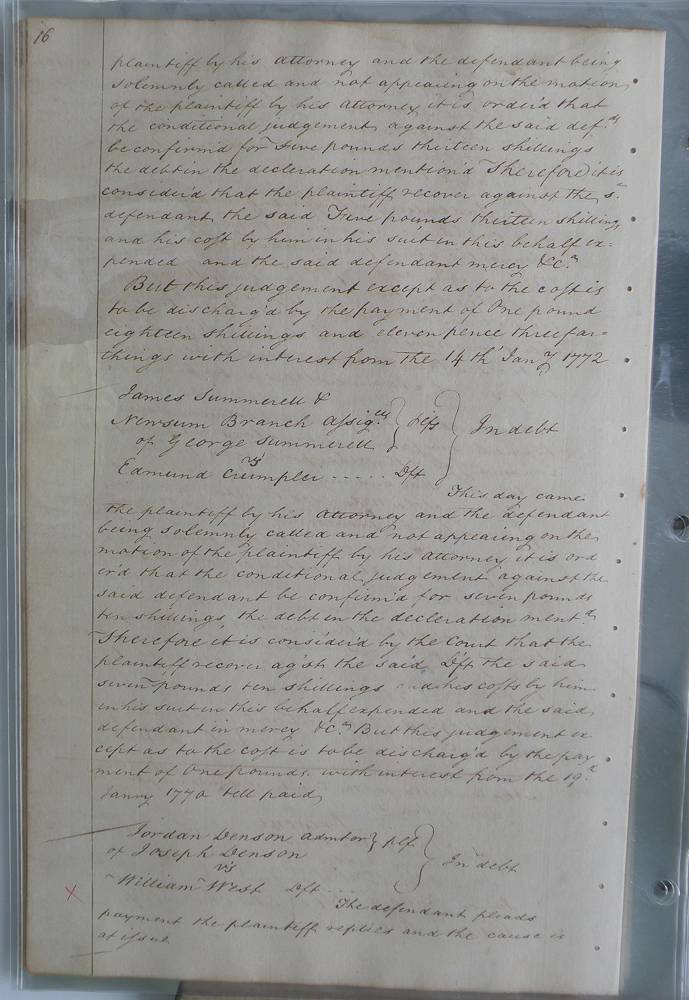 16
plaintiff by his attorney and the defendant being
solemnly called and not appearing on the motion
of the plaintiff by his attorney it is order'd that
the conditional judgement against the said def.ts
be confirm'd for Five pounds thirteen shillings
the debt in the decleration mention'd Therefore it is
consider'd that the plaintiff recover against the s.d
defendant the said Five pounds thirteen shillings
and his cost by him in his suit in this behalf ex=
pended and the said defendant mercy &c.a
But this judgement except as to the cost is
to be discharg'd by the payment of One pound
eighteen shillings and eleven pence three far=
things with interest from the 14th Jan.y 1772
James Summerell &
Newsum Branch assig.ees } plfs } In debt
of George Summerell
vs
Edmund Crumpler ..... Dft
This day came
the plaintiff by his attorney and the defendant
being solemnly called and not appearing on the
motion of the plaintiff by his attorney it is ord
er'd that the conditional judgement against the
said defendant be confirm'd for seven pounds
ten shillings, the debt in the decleration ment.d
Therefore it is consider'd by the Court that the
plaintiff recover ag'st the said Dft the said
seven pounds ten shillings and his costs by him
in his suit in this behalf expended and the said
defendant in mercy &c.a But this judgement ex
cept as to the cost is to be discharg'd by the pay
ment of One pounds with interest from the 19.th
Janry 1770 tell paid
Jordan Denson admtor } plf }
of Joseph Denson
vs In debt
William West Dft ....
The defendant pleads
payment the plaintiff replies and the cause is
at issue